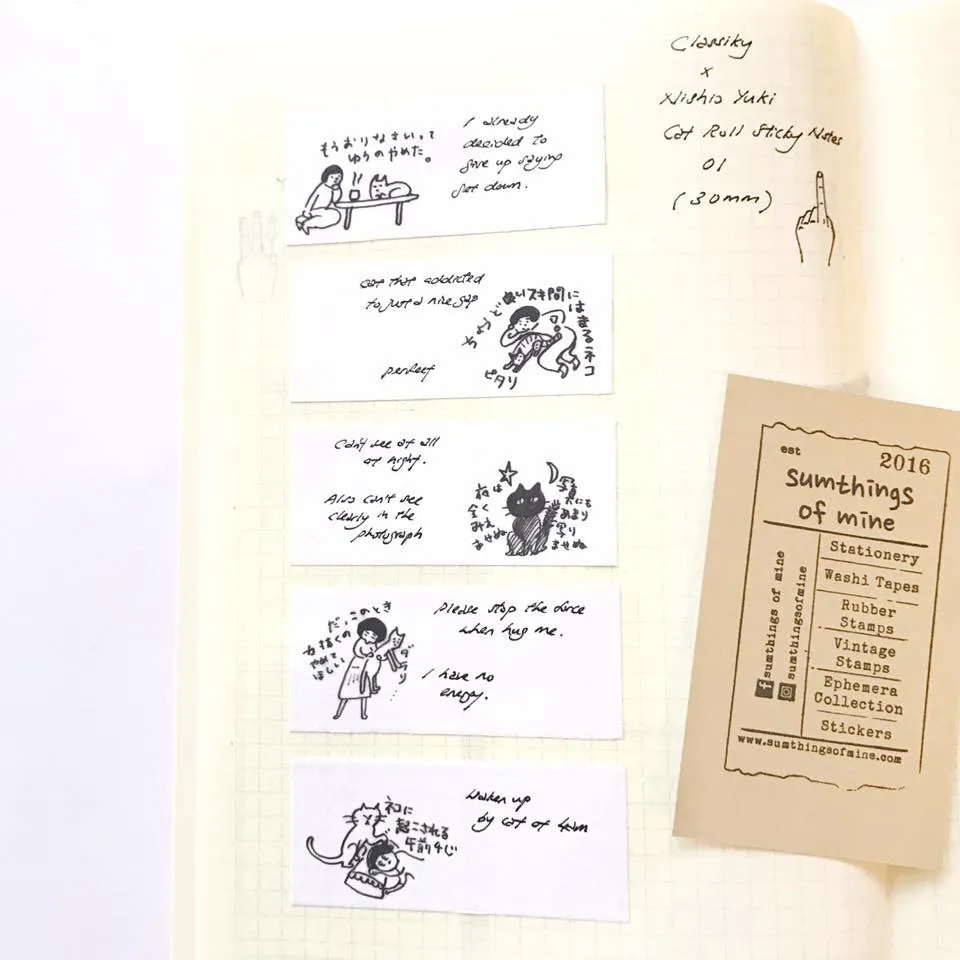 Classiky
x
Nishio Yuki
Cat Roll Sticky Notes
01
(30mm)
もうおりなさいって
ゆうのやめた。
I already
decided to
give up saying
get down.
cat that addicted
to just a nice gap
perfect
ちょうど良いスキ間に
はまるネコ
ピタリ
Can't see at all
at night.
Also can't see
clearly in the
photograph
夜は
全く
みえ
ませぬ
写真
にも
あまり
写り
ませぬ
だっこのとき
力抜くの
やめて
ほしい
ダラリ
Please stop the force
when hug me.
I have no
energy.
ネコに
起こされる
午前4じ
Waken up
by cat at 4am
est 2016
sumthings
of mine
Stationery
Washi Tapes
Rubber
Stamps
Vintage
Stamps
Ephemera
Collection
Stickers
sumthings of mine
sumthingsofmine
www.sumthingsofmine.com